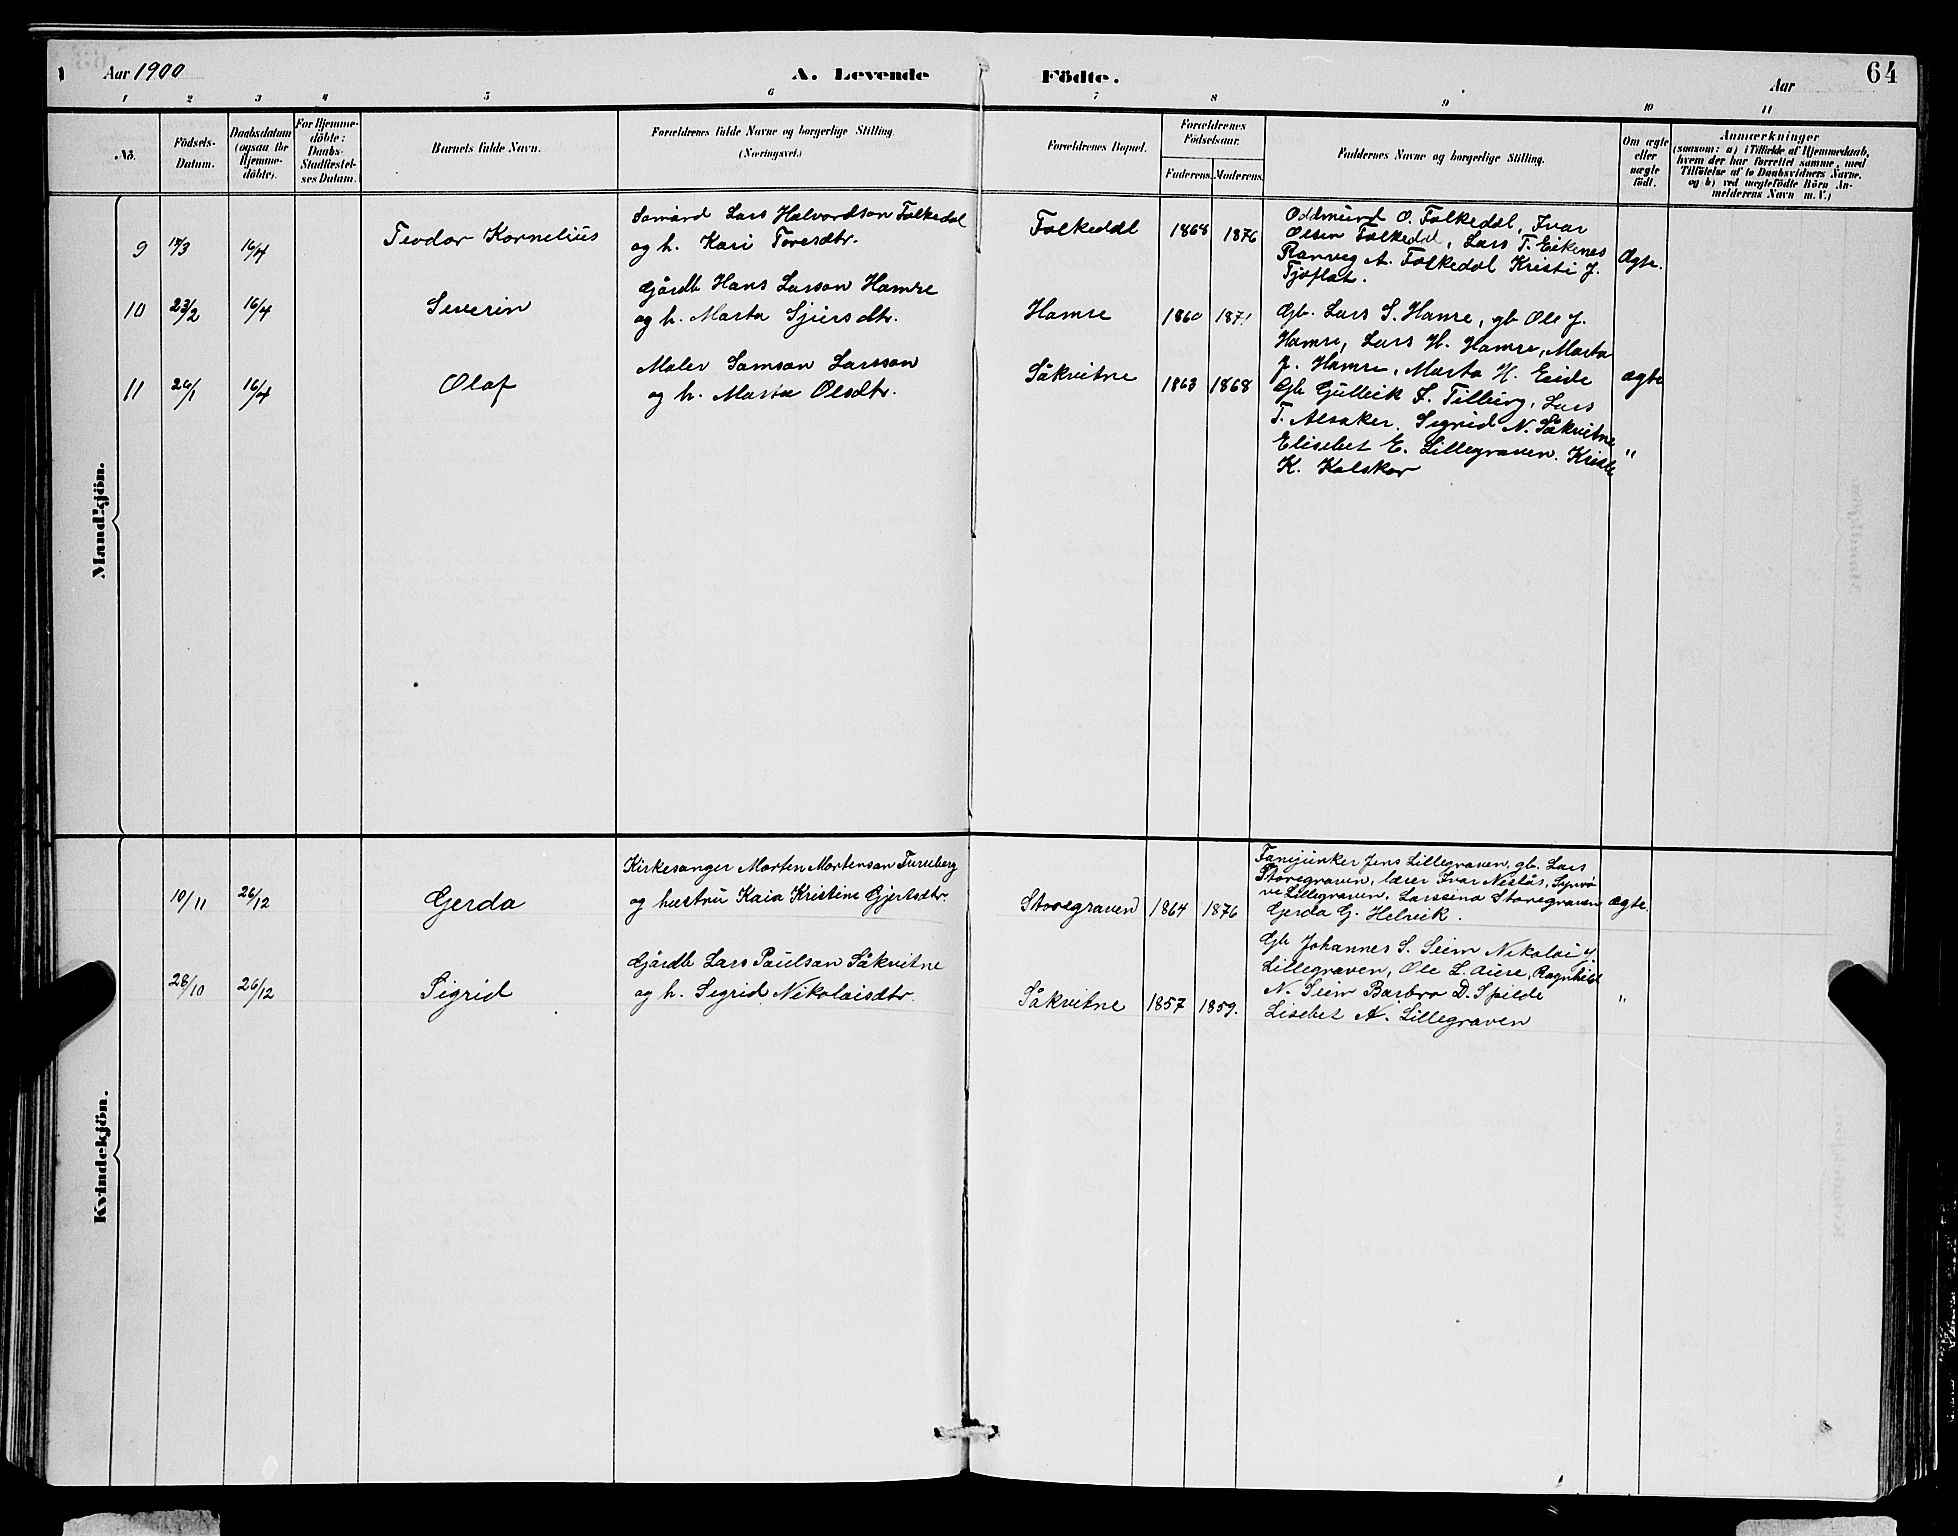 Aar 1900
A. Levende Födte.
Aar
64
1 2 3 4 5 6 7 8 9 10 11
No.
Födsels-
Datum.
Daabsdatum
(ogsaa for
Hjemme-
döbte).
For Hjemme-
döbte:
Daabs-
Stadfæstel-
ses Datum.
Barnets fulde Navn.
Forældrenes fulde Navne og borgerlige Stilling.
(Næringsvei.)
Forældrenes Bopæl.
Forældrenes
Födselsaar.
Faderens. Moderens.
Faddernes Navne og borgerlige Stilling.
Om ægte
eller
uægte
födt.
Anmærkninger
(saasom: a) i Tilfælde af Hjemmedaab,
hvem der har forrettet samme, med
Tilföielse af to Daabsvidners Navne,
og b) ved uægtefödte Börn An-
melderens Navn m. V.)
Mandkjön.
9 /3 16/4 Teodor Kornelius
Lars Halvordson Folkedal
og h. Kari Toresdtr.
Folkedal 1868 1876
Oddmund O. Folkedal, Ivar
Olsen Folkedal, Lars T. Eikenes
Ranveg A. Folkedal Kristi J.
Tjoflat.
Ægte.
10 23/2 16/4 Severin
Gårdb Hans Larson Hamre
og h. Marta Sjursdtr.
Hamre 1860 1871
Gb. Lars S. Hamre, gb Ole J.
Hamre, Lars H. Hamre, Marta
J. Hamre, Marta H. Eide
ægte
11 26/1 16/4 Olaf
Maler Samson Larsson
og h. Marta Olsdtr.
Såkvitne 1863 1868
Gb Gulleik L. Tillung, Lars
T. Alsaker. Sigrid N. Såkvitne
Elisebet E. Lillegraven. Kristi
K. Kolskar
"
Kvindekjön.
10/11 26/12 Gerda
Kirkesanger Morten Mortenson Furuberg
og hustru Kaia Kristine Gjertsdtr.
Storegraven 1864 1876
Fanejunker Jens Lillegraven, gb. Lars
Storegraven, lærer Ivar Nestås, Synnö-
ve Lillegraven, Larssena Storegraven
Gerda G. Helvik.
ægte.
28/10 26/12 Sigrid
Gårdb Lars Paulson Såkvitne
og h. Sigrid Nikolaisdtr.
Såkvitne 1857 1859.
Gb Johannes S. Seim Nikolai J
Lillegraven, Ole L. Aise, Ragnhild
N. Seim Barbro D. Spilde
Lisebet A. Lillegraven
"